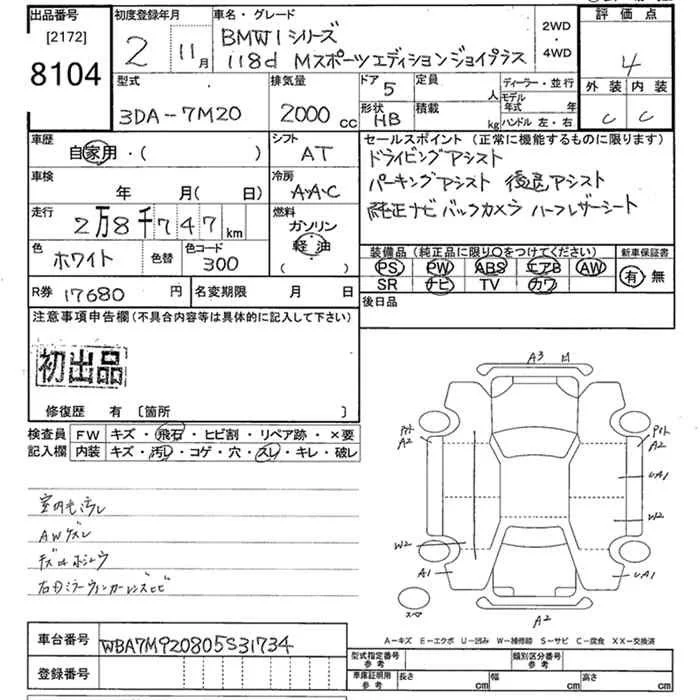 出品番号 初度登録年月 車名・グレード 2WD・4WD 評価点
[2172]
8104 2 11月 BMW1シリーズ
118d MスポーツエディションジョイプラS 4
型式 排気量 ドア 5 定員 人 ディーラー・並行 外装 内装
3DA-7M20 2000cc 形状 HB 積載 kg モデル年式 年
ハンドル 左・右 C C
車歴 シフト セールスポイント (正常に機能するものに限ります)
自家用・( ) AT ドライビングアシスト
車検 冷房 パーキングアシスト 後退アシスト
年 月( 日) AAC 純正ナビ バックカメラ ハーフレザーシート
走行 2万8千747km 燃料 ガソリン
軽油
( )
色 ホワイト 色替 色コード 300
装備品 (純正品に限り○をつけてください) 新車保証書
PS PW ABS エアB AW 有・無
SR ナビ TV カワ
R券 17680円 名変期限 月 日 後日品
注意事項申告欄 (不具合内容等は具体的に記入して下さい)
初出品
修復歴 有 [箇所 ]
検査員 FW キズ・飛石・ヒビ割・リペア跡・×要
記入欄 内装 キズ・汚レ・コゲ・穴・スレ・キレ・破レ
A3
A2 A2
UA1
W2
W2
A1 UA1
スペア A2
室内モ汚レ
AWズレ
右ドミラーウィンカーレンズヒビ
A-キズ E-エクボ U-凹み W-補修跡 S-サビ C-腐食 XX-交換済
車台番号 WBA7M920805S31734
登録番号
型式指定番号 参考 類別区分番号 参考
車庫証明用 参考 長さ cm 幅 cm 高さ cm